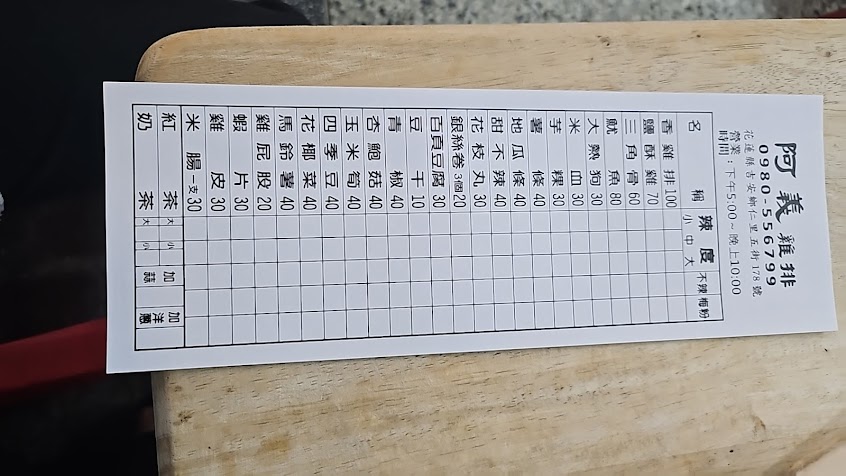 阿義雞排
0980-556799
花蓮縣吉安鄉仁里五街178號
營業時間:下午5:00～晚上10:00
名稱 辣度 小 中 大 不辣 梅粉
香雞排 100
鹽酥雞 70
三角骨 60
魷魚 80
大熱狗 30
米血 30
芋粿 30
薯條 40
地瓜條 40
甜不辣 40
花枝丸 30
銀絲卷 3個 20
百頁豆腐 30
豆干 10
青椒 40
杏鮑菇 40
玉米筍 40
四季豆 40
花椰菜 40
馬鈴薯 40
雞屁股 20
蝦片 30
雞皮 30
米腸 一支 30
紅茶 大 小 加蒜 加洋蔥
奶茶 大 小